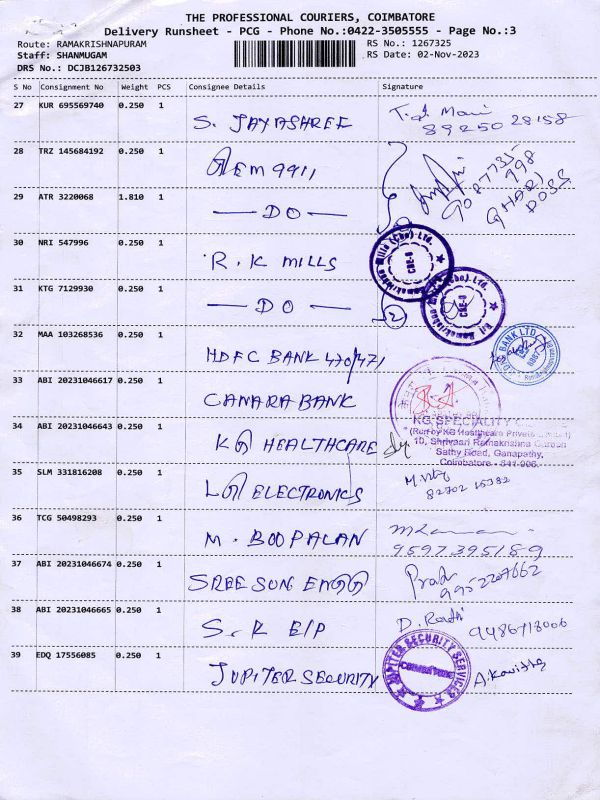 THE PROFESSIONAL COURIERS, COIMBATORE
Delivery Runsheet - PCG - Phone No.:0422-3505555 - Page No.:3
Route: RAMAKRISHNAPURAM RS No.: 1267325
Staff: SHANMUGAM RS Date: 02-Nov-2023
DRS No.: DCJB126732503
S No Consignment No Weight PCS Consignee Details Signature
27 KUR 695569740 0.250 1 S. JAYASHREE
89250 28158
28 TRZ 145684192 0.250 1 GEM 9911
29 ATR 3220068 1.810 1 — DO —
30 NRI 547996 0.250 1 R. K MILLS
31 KTG 7129930 0.250 1 — DO — 2
32 MAA 103268536 0.250 1 HDFC BANK 470/471
33 ABI 20231046617 0.250 1 CANARA BANK
34 ABI 20231046643 0.250 1 KG HEALTHCARE
KG SPECIALITY
(Run by KG Healthcare Private Limited)
10, Shrivaari Ramakrishna Garden
Sathy Road, Ganapathy,
Coimbatore - 641 006.
35 SLM 331816208 0.250 1 LG ELECTRONICS
82702 15382
36 TCG 50498293 0.250 1 M. BOOPALAN
9597395189
37 ABI 20231046674 0.250 1 SREE SUN ENGG
9952207662
38 ABI 20231046665 0.250 1 S. K E/P
9486718006
39 EDQ 17556085 0.250 1 JUPITER SECURITY A. Kavitha
JUPITER SECURITY SERVICES
COIMBATORE